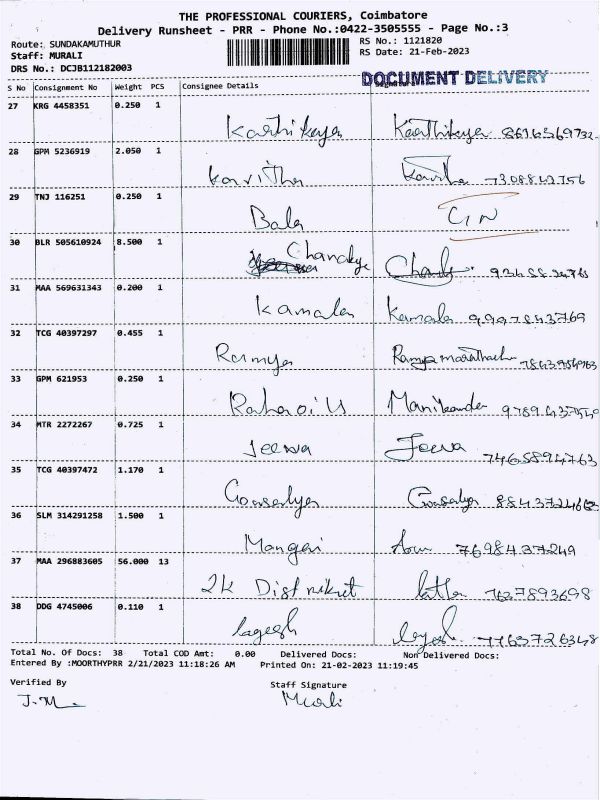 THE PROFESSIONAL COURIERS, Coimbatore
Delivery Runsheet - PRR - Phone No.:0422-3505555 - Page No.:3
Route: SUNDAKAMUTHUR RS No.: 1121820
Staff: MURALI RS Date: 21-Feb-2023
DRS No.: DCJB112182003
DOCUMENT DELIVERY
S No Consignment No Weight PCS Consignee Details
27 KRG 4458351 0.250 1
Karthikeya Karthikeya
28 GPM 5236919 2.050 1
Kavitha Kavitha 7308843756
29 TNJ 116251 0.250 1
Bala
30 BLR 505610924 8.500 1
Chanakye
31 MAA 569631343 0.200 1
Kamala Kamala 9997843769
32 TCG 40397297 0.455 1
Ramya
33 GPM 621953 0.250 1
Manikandan
34 MTR 2272267 0.725 1
Jeeva Jeeva 7465894763
35 TCG 40397472 1.170 1
Gowsalya Gowsalya
36 SLM 314291258 1.500 1
Mangai 7698437249
37 MAA 296883605 56.000 13
2K Distrikret 7627893698
38 DDG 4745006 0.110 1
Total No. Of Docs: 38 Total COD Amt: 0.00 Delivered Docs: Non Delivered Docs:
Entered By :MOORTHYPRR 2/21/2023 11:18:26 AM Printed On: 21-02-2023 11:19:45
Verified By Staff Signature
J.M Murali